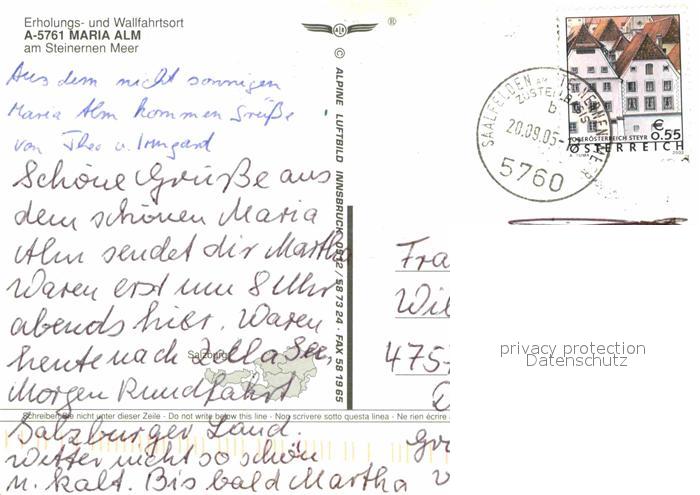 Erholungs- und Wallfahrtsort
A-5761 MARIA ALM
am Steinernen Meer
Aus dem nicht sonnigen
Maria Alm kommen Grüße
von Theo u. Irmgard
Schöne Grüße aus
dem schönen Maria
Alm sendet dir Martha
Waren erst um 8 Uhr
abends hier. Waren
heute nach Zell a See,
Morgen Rundfahrt
Salzburger Land.
Wetter nicht so schön
u. kalt. Bis bald Martha
Salzburg
Schreiben Sie nicht unter dieser Zeile - Do not write below this line - Non scrivere sotto questa linea - Ne rien écrire
ALPINE LUFTBILD INNSBRUCK 0512 / 58 73 24 · FAX 58 19 65
©
®
SAALFELDEN AM STEINERNEN MEER
ZUSTELLBASIS
b
20.09.05
5760
€
0.55
OBERÖSTERREICH STEYR
ÖSTERREICH
Fra
Wil
475
Gr
privacy protection
Datenschutz